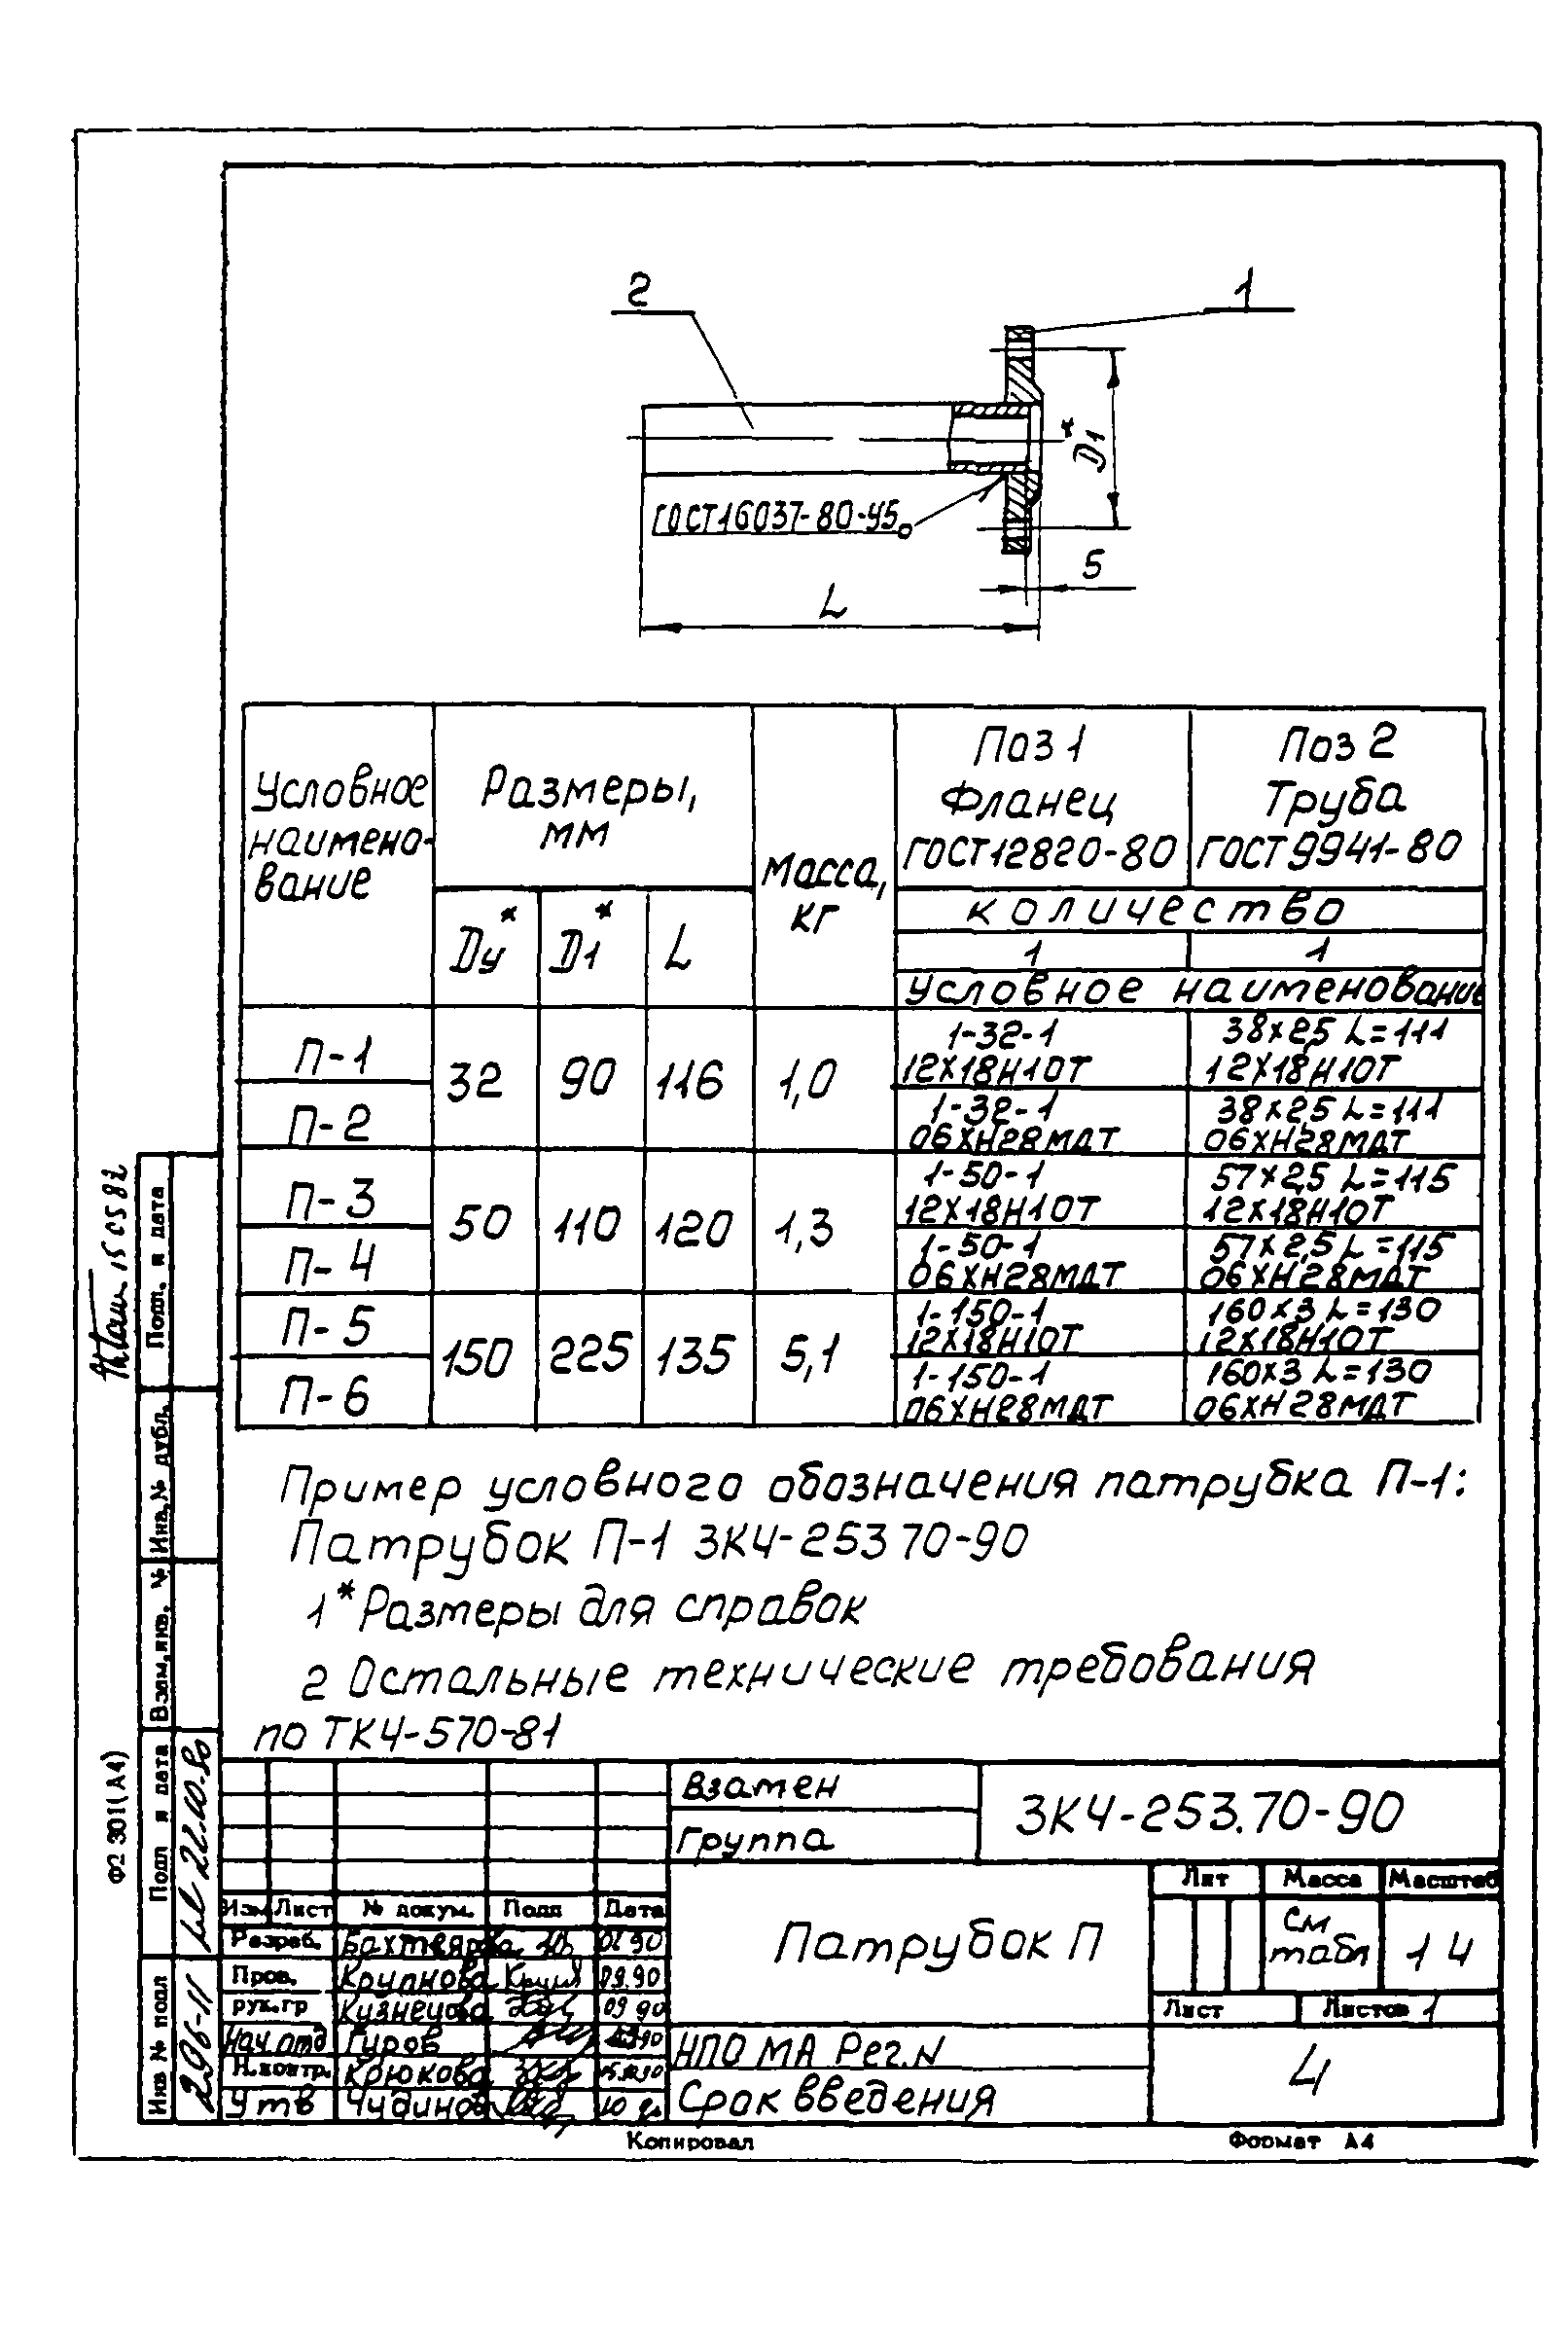 2
1
D1*
ГОСТ16037-80-У5
5
L
Условное наимено-вание
Размеры, мм
Масса, кг
Поз 1
Фланец
ГОСТ12820-80
Поз 2
Труба
ГОСТ9941-80
Dу* D1* L
количество
1 1
Условное наименование
П-1 32 90 116 1,0 1-32-1 38х2,5 L=111
12Х18Н10Т 12Х18Н10Т
П-2 1-32-1 38х2,5 L=111
06ХН28МДТ 06ХН28МДТ
П-3 50 110 120 1,3 1-50-1 57х2,5 L=115
12Х18Н10Т 12Х18Н10Т
П-4 1-50-1 57х2,5 L=115
06ХН28МДТ 06ХН28МДТ
П-5 150 225 135 5,1 1-150-1 160х3 L=130
12Х18Н10Т 12Х18Н10Т
П-6 1-150-1 160х3 L=130
06ХН28МДТ 06ХН28МДТ
Пример условного обозначения патрубка П-1:
Патрубок П-1 ЗК4-253 70-90
1* Размеры для справок
2 Остальные технические требования
по ТК4-570-81
Взамен
Группа
ЗК4-253.70-90
Изм Лист № докум. Подп Дата
Разраб.
Пров. Крупнова 09.90
рук.гр Кузнецова 09 90
Нач отд Гуров
Н.контр. Крюкова
Утв
Патрубок П
Лит Масса Масштаб
См табл
1 4
Лист Листов 1
НПО МА Рег.N
Срок введения
4
Копировал Формат А4
Подп. и дата
Инв.№ дубл.
Взам.инв. №
Подп и дата
22.10.90
Инв № подп
296-11
Ф2 301(А4)